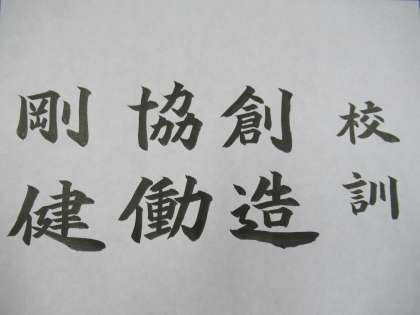 校訓
創造
協働
剛健